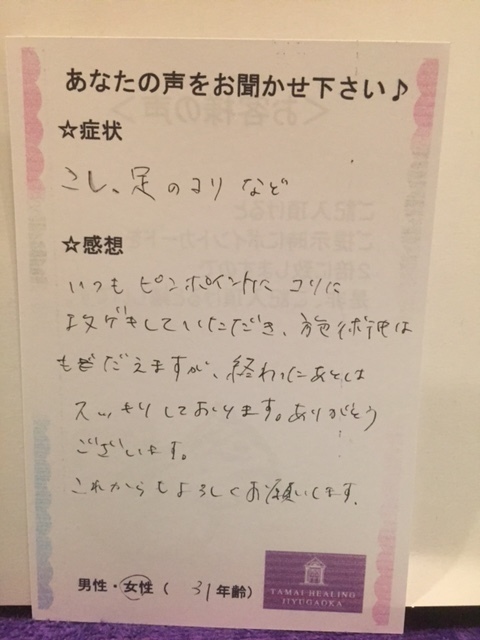 あなたの声をお聞かせ下さい♪
☆症状
こし、足のコリ など
☆感想
いつも ピンポイントに コリに
攻ゲキしていただき、施術中は
もだえますが、終わったあとは
スッキりしております。ありがとう
ございます。
これからもよろしくお願いします。
男性・女性（ 31年齢）
TAMAI HEALING
JIYUGAOKA